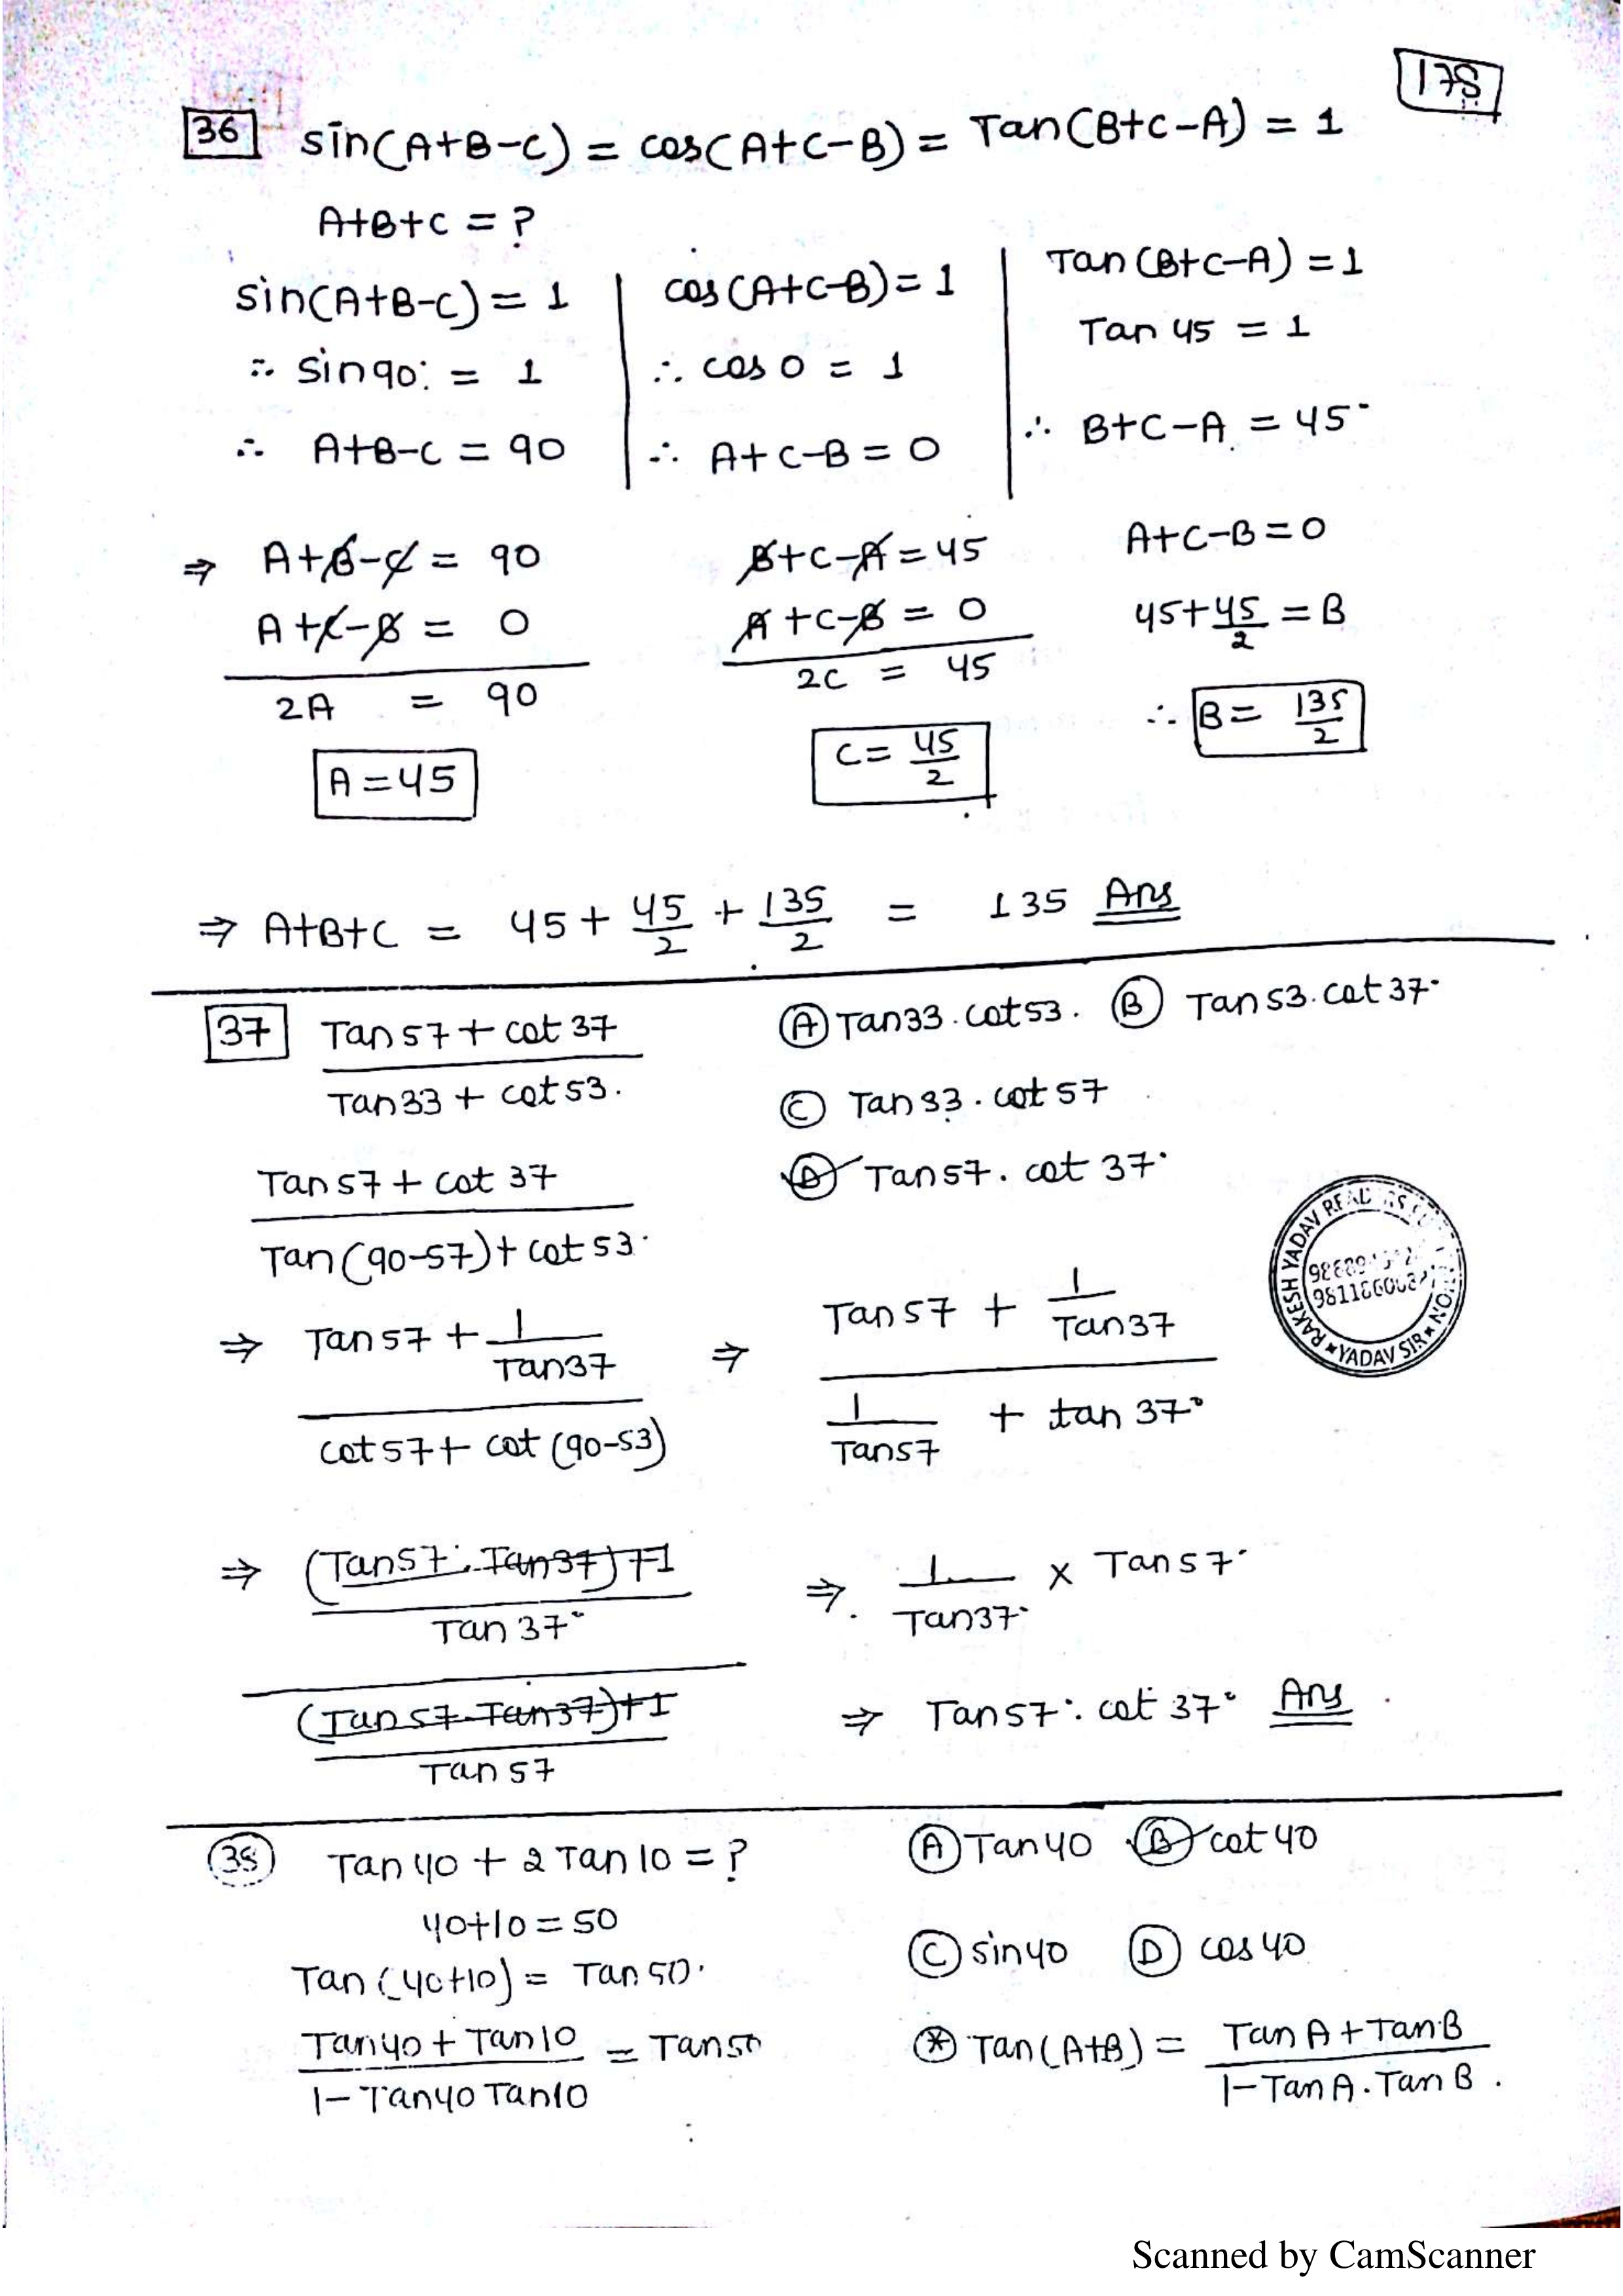 178
36 sin(A+B-C) = cos(A+C-B) = Tan(B+C-A) = 1
A+B+C = ?
sin(A+B-C) = 1
∴ sin90° = 1
∴ A+B-C = 90
cos(A+C-B) = 1
∴ cos 0 = 1
∴ A+C-B = 0
Tan(B+C-A) = 1
Tan 45 = 1
∴ B+C-A = 45°
⇒ A+B-C = 90
A+C-B = 0
2A = 90
A = 45
B+C-A = 45
A+C-B = 0
2C = 45
C = 45/2
A+C-B = 0
45+45/2 = B
∴ B = 135/2
⇒ A+B+C = 45 + 45/2 + 135/2 = 135 Ans
37 Tan57 + cot 37
Tan33 + cot53.
A Tan33.cot53. B Tan53.cot37°
C Tan33.cot57
D Tan57.cot 37°
Tan57 + cot 37
Tan(90-57)+cot53°
⇒ Tan57 + 1/Tan37
cot57 + cot(90-53)
⇒ Tan57 + 1/Tan37
1/Tan57 + tan 37°
⇒ (Tan57°.Tan37)+1
Tan 37°
(Tan57.Tan37)+1
Tan 57
⇒. 1/Tan37° × Tan57°
⇒ Tan57°. cot 37° Ans
RAKESH YADAV READERS
YADAV SIR
38 Tan40 + 2Tan10 = ?
A Tan40 B cot40
C sin40 D cos40
40+10 = 50
Tan(40+10) = Tan50°
Tan40 + Tan10 = Tan50
1-Tan40 Tan10
* Tan(A+B) = TanA+TanB
1-TanA.TanB.
Scanned by CamScanner